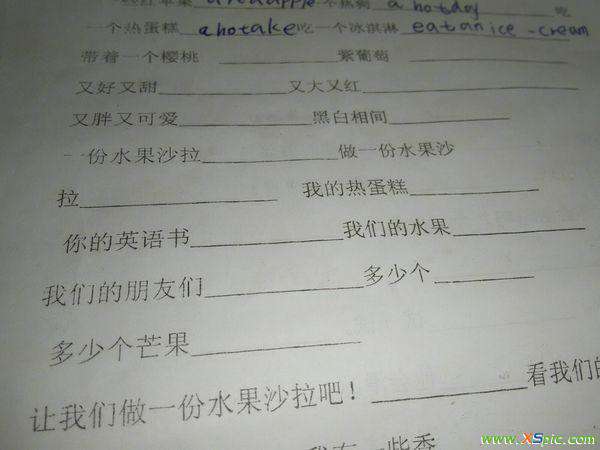 红苹果 aredapple 个热狗 a hotdog 吃
一个热蛋糕 ahotake 吃一个冰淇淋 eatanice -cream
带着一个樱桃 紫葡萄
又好又甜 又大又红
又胖又可爱 黑白相间
一份水果沙拉 做一份水果沙
拉 我的热蛋糕
你的英语书 我们的水果
我们的朋友们 多少个
多少个芒果
让我们做一份水果沙拉吧! 看我们的
有一些香
www.XSpic.com